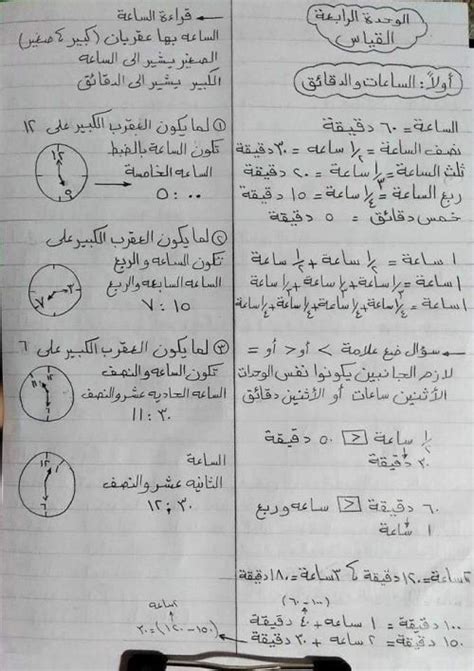 الوحدة الرابعة
القياس
أولاً: الساعات والدقائق
الساعة = ٦٠ دقيقة
نصف الساعة = ١/٢ ساعة = ٣٠ دقيقة
ثلث الساعة = ١/٣ ساعة = ٢٠ دقيقة
ربع الساعة = ١/٤ ساعة = ١٥ دقيقة
خمس دقائق = ٥ دقيقة
١ ساعة = ١/٢ ساعة + ١/٢ ساعة
١ ساعة = ١/٣ ساعة + ١/٣ ساعة + ١/٣ ساعة
١ ساعة = ١/٤ ساعة + ١/٤ ساعة + ١/٤ ساعة + ١/٤ ساعة
سؤال ضع علامة > أو < أو =
لازم الجانبين يكونوا نفس الوحدات
الأثنين ساعات أو الأثنين دقائق
١/٢ ساعة < ٥٠ دقيقة
٣٠ دقيقة
٦٠ دقيقة < ساعه وربع
١ ساعة
٢ ساعة = ١٢٠ دقيقة ٣ ساعة = ١٨٠ دقيقة
(٦٠ - ١٠٠)
١٠٠ دقيقة = ١ ساعه + ٤٠ دقيقة
١٥٠ دقيقة = ٢ ساعه + ٣٠ دقيقة
قراءة الساعة
الساعه بها عقربان (كبير & صغير)
الصغير يشير الى الساعه
الكبير يشير الى الدقائق
① لما يكون العقرب الكبير على ١٢
تكون الساعة بالضبط
الساعه الخامسة
٥ : ٠٠
② لما يكون العقرب الكبير على
٣
تكون الساعه والربع
الساعه السابعه والربع
٧ : ١٥
٧
③ لما يكون العقرب الكبير على ٦
تكون الساعه والنصف
الساعه الحاديه عشر والنصف
١١ : ٣٠
الساعة
الثانيه عشر والنصف
١٢ : ٣٠
١٢
٦
٢ ساعه
٣٠ = (١٢٠ - ١٥٠)